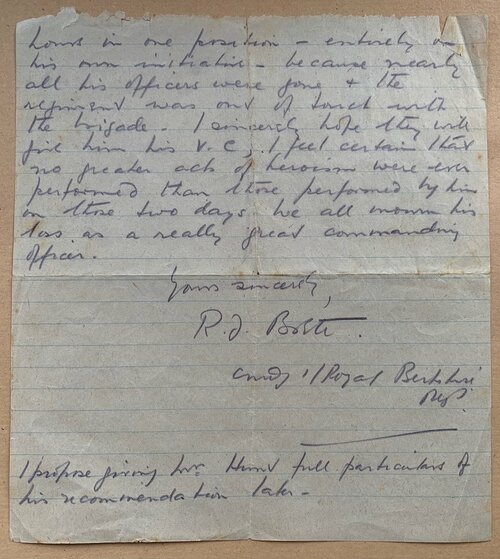 hours in one position - entirely on
his own initiative - because nearly
all his officers were gone & the
regiment was out of touch with
the brigade. I sincerely hope they will
give him his V.C, I feel certain that
no greater acts of heroism were ever
performed than those performed by him
on those two days. We all mourn his
loss as a really great commanding
officer.
Yours sincerely,
R. J.
Comdg 1/Royal Berkshire
Regt.
I propose giving Mrs. Hunt full particulars of
his recommendation later -